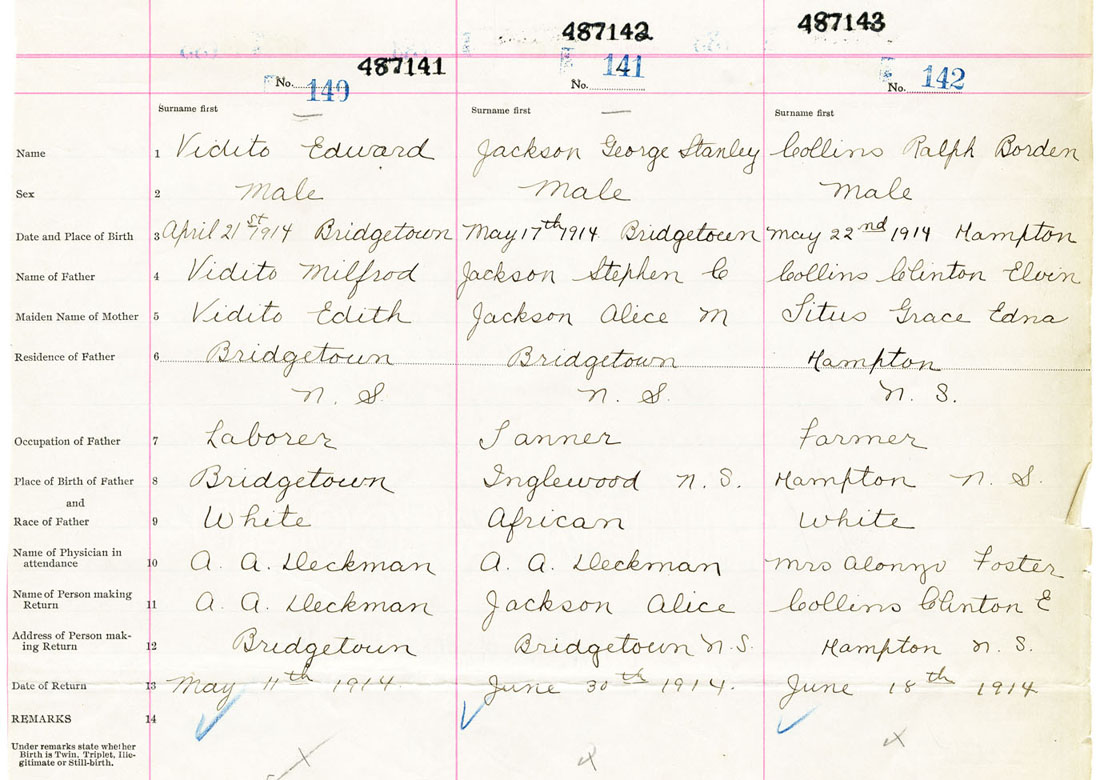 487141 487142 487143
No. 140 No. 141 No. 142
Surname first Surname first Surname first
Name 1 Vidito Edward Jackson George Stanley Collins Ralph Borden
Sex 2 Male Male Male
Date and Place of Birth 3 April 21st 1914 Bridgetown May 17th 1914 Bridgetown May 22nd 1914 Hampton
Name of Father 4 Vidito Milfrod Jackson Stephen C Collins Clinton Elvin
Maiden Name of Mother 5 Vidito Edith Jackson Alice M Titus Grace Edna
Residence of Father 6 Bridgetown Bridgetown Hampton
N. S. N. S. N. S.
Occupation of Father 7 Laborer Tanner Farmer
Place of Birth of Father 8 Bridgetown Inglewood N. S. Hampton N. S.
and
Race of Father 9 White African White
Name of Physician in
attendance 10 A. A. Deckman A. A. Deckman Mrs Alonzo Foster
Name of Person making
Return 11 A. A. Deckman Jackson Alice Collins Clinton E
Address of Person mak-
ing Return 12 Bridgetown Bridgetown N.S. Hampton N. S.
Date of Return 13 May 11th 1914. June 30th 1914. June 18th 1914
REMARKS 14
Under remarks state whether
Birth is Twin, Triplet, Ille-
gitimate or Still-birth.